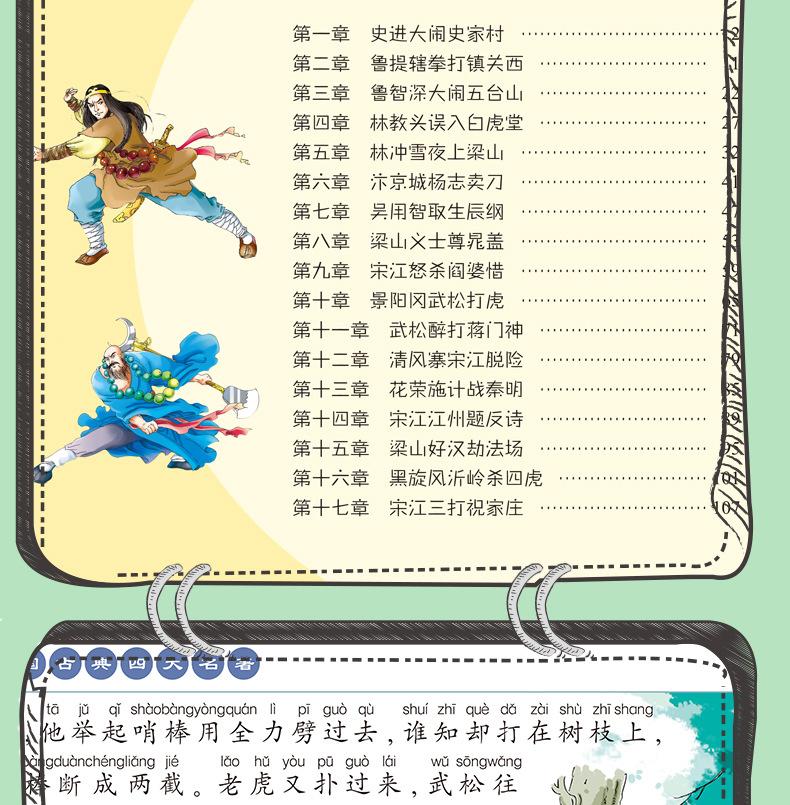 第一章 史进大闹史家村 2
第二章 鲁提辖拳打镇关西
第三章 鲁智深大闹五台山 22
第四章 林教头误入白虎堂 27
第五章 林冲雪夜上梁山 32
第六章 汴京城杨志卖刀 41
第七章 吴用智取生辰纲 47
第八章 梁山义士尊晁盖
第九章 宋江怒杀阎婆惜
第十章 景阳冈武松打虎
第十一章 武松醉打蒋门神
第十二章 清风寨宋江脱险
第十三章 花荣施计战秦明
第十四章 宋江江州题反诗
第十五章 梁山好汉劫法场
第十六章 黑旋风沂岭杀四虎 101
第十七章 宋江三打祝家庄 107
古典四大名著
tā jǔ qǐ shàobàngyòngquán lì pī guò qù shuí zhī què dǎ zài shù zhī shang
他举起哨棒用全力劈过去，谁知却打在树枝上，
duànchéngliǎng jié lǎo hǔ yòu pū guò lái wǔ sōngwǎng
棒断成两截。老虎又扑过来，武松往